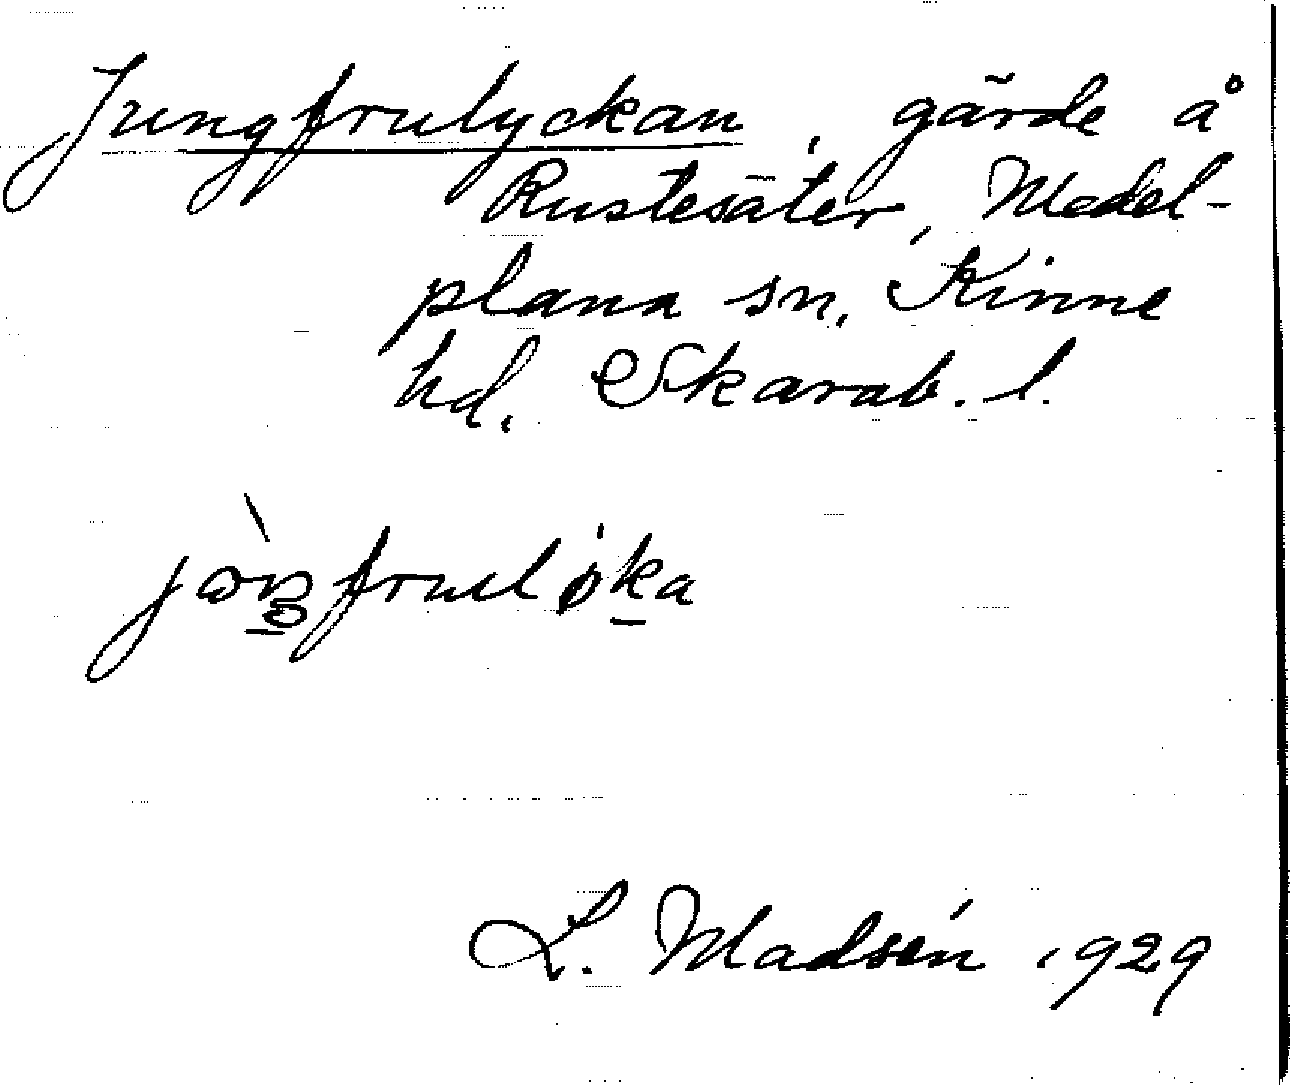 Jungfrulyckan, gärde å
Rustesäter, Medel-
plana sn, Kinne
hd. Skarab. l.
L. Madsén 1929